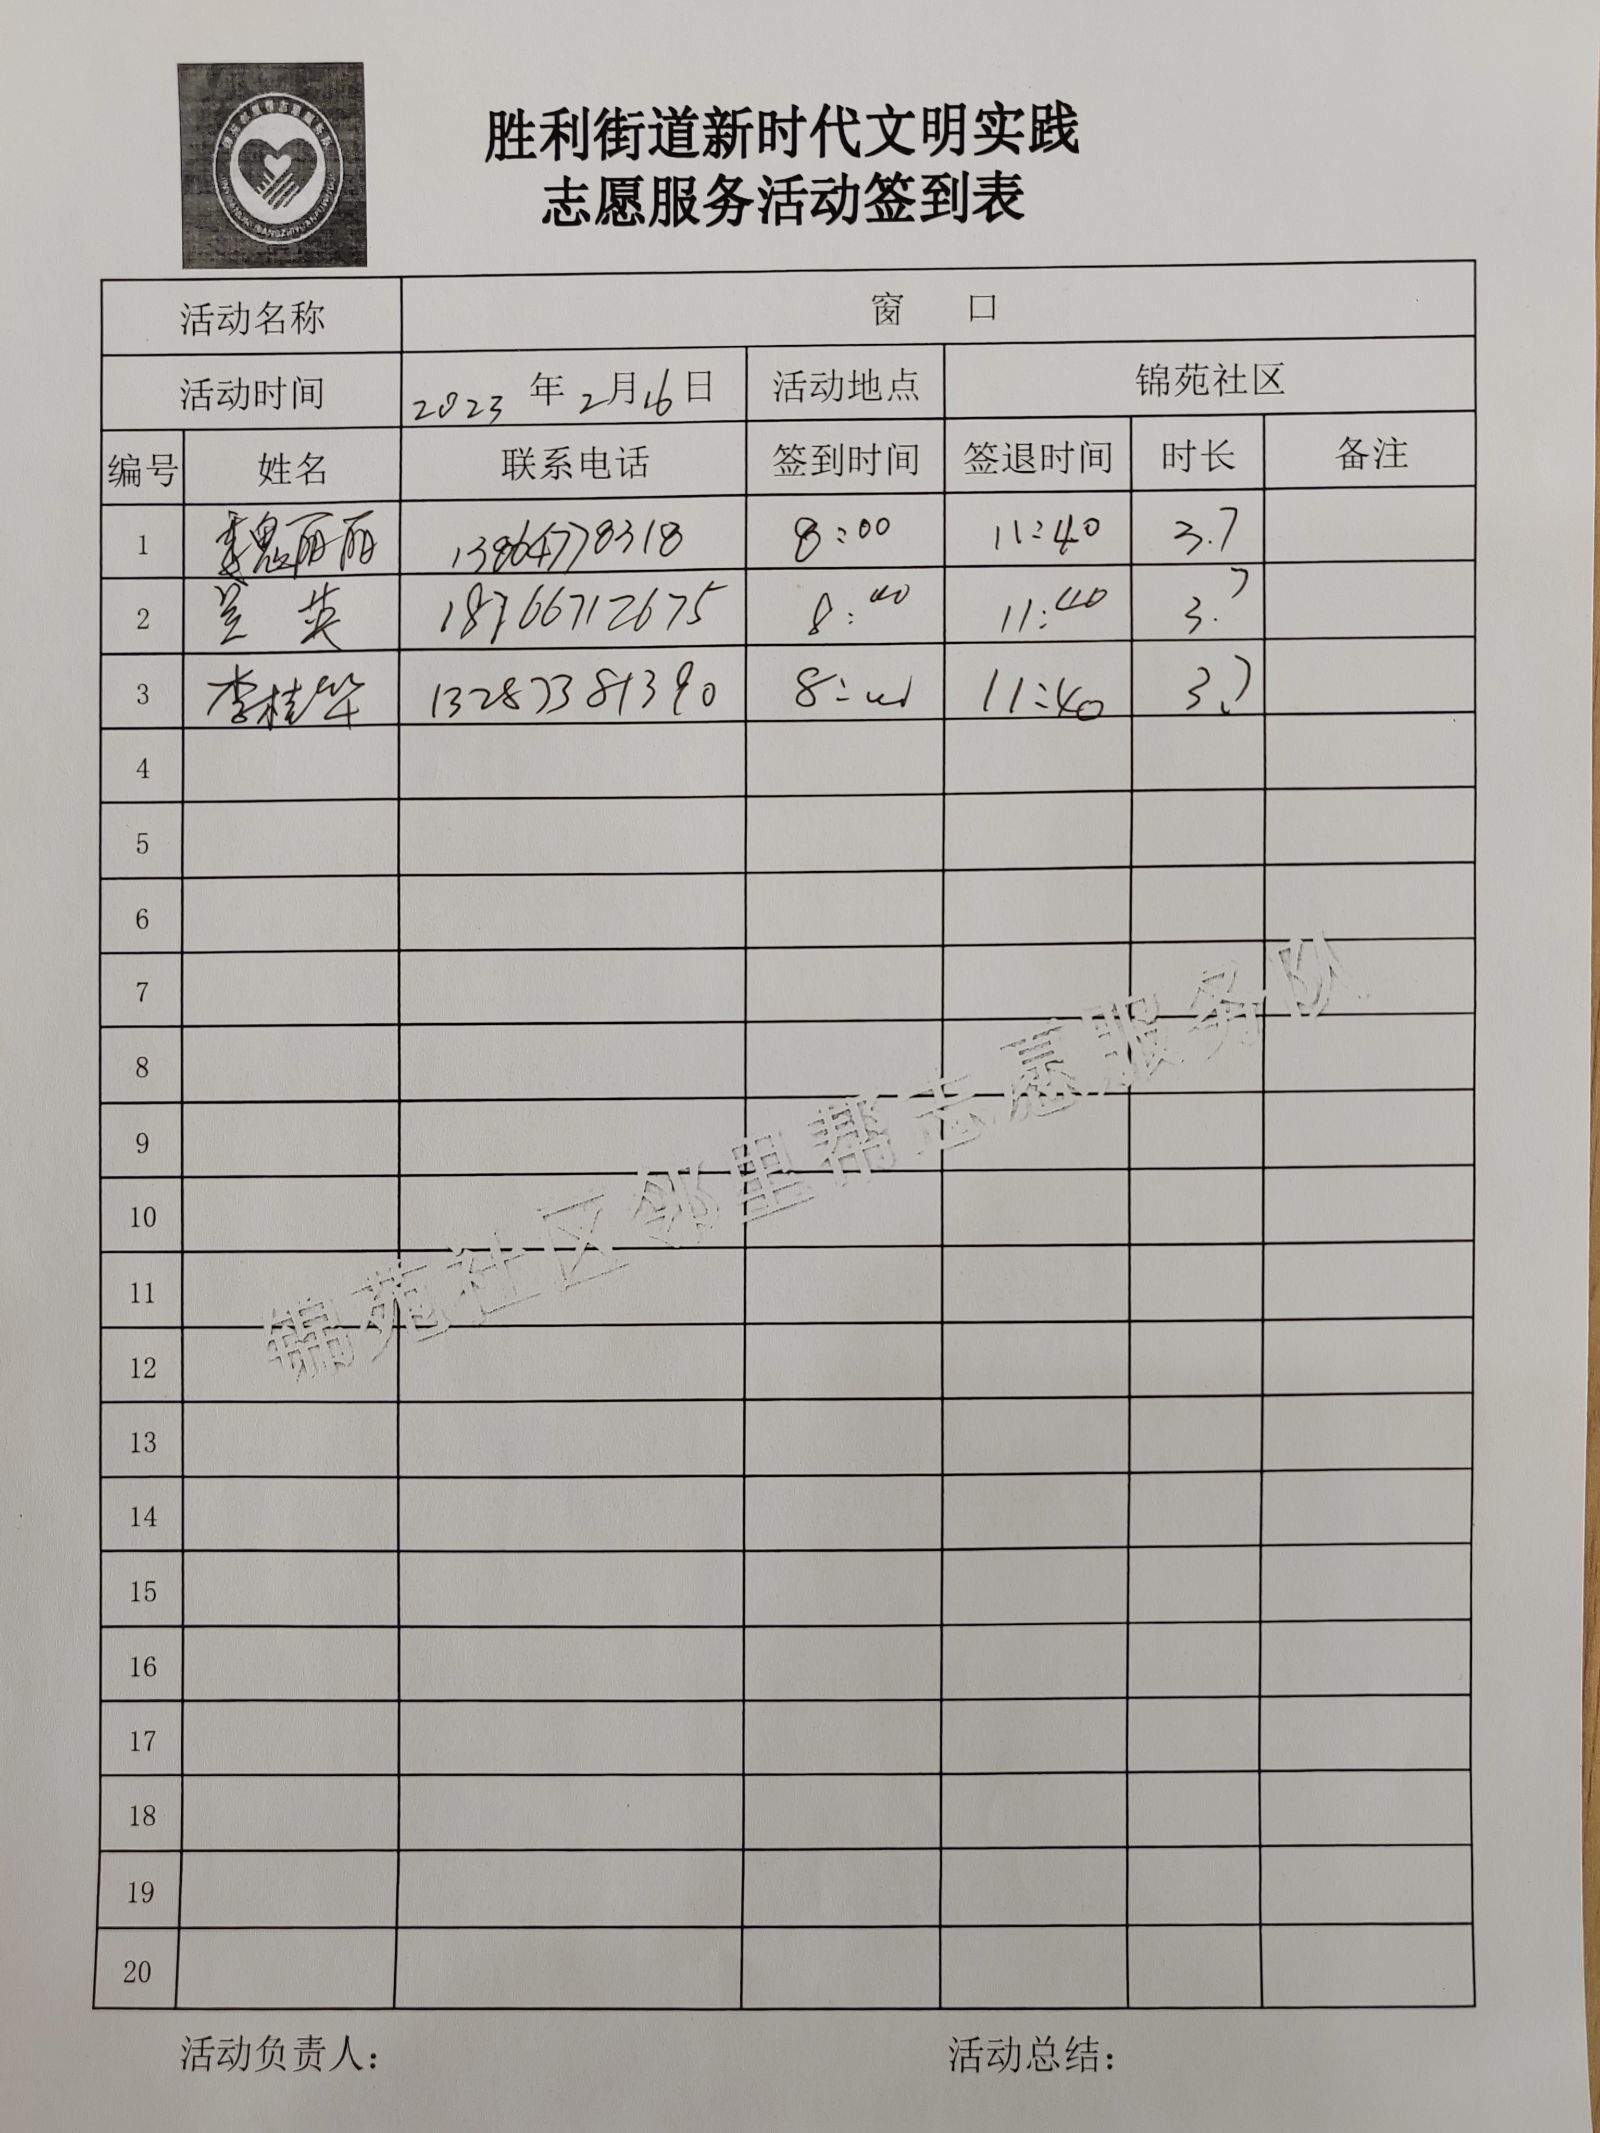 胜利街道新时代文明实践
志愿服务活动签到表
活动名称 窗 口
活动时间 2023 年 2 月 16 日 活动地点 锦苑社区
编号 姓名 联系电话 签到时间 签退时间 时长 备注
1 魏丽丽 13864778318 8:00 11:40 3.7
2 兰英 18766712675 8: 11:40 3.7
3 李桂华 13287381390 8: 11:40 3.7
4
5
6
7
8
9
10
11
12
13
14
15
16
17
18
19
20
锦苑社区邻里帮志愿服务队
活动负责人: 活动总结: